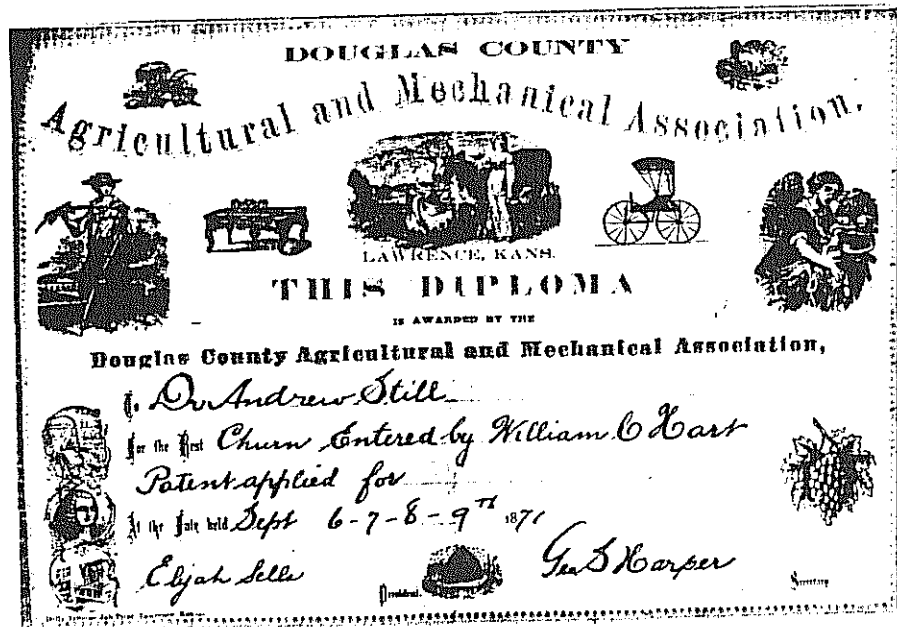 DOUGLAS COUNTY
Agricultural and Mechanical Association,
LAWRENCE, KANS.
THIS DIPLOMA
IS AWARDED BY THE
Douglas County Agricultural and Mechanical Association,
To Dr Andrew Still
For the Best Churn Entered by William C Hart
Patent applied for
At the Fair held Sept 6-7-8-9th 1871
Elijah Sells President. Geo S Harper Secretary